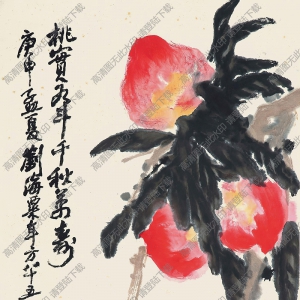 桃實九年千秋萬壽
庚申孟夏劉海粟年方八十五